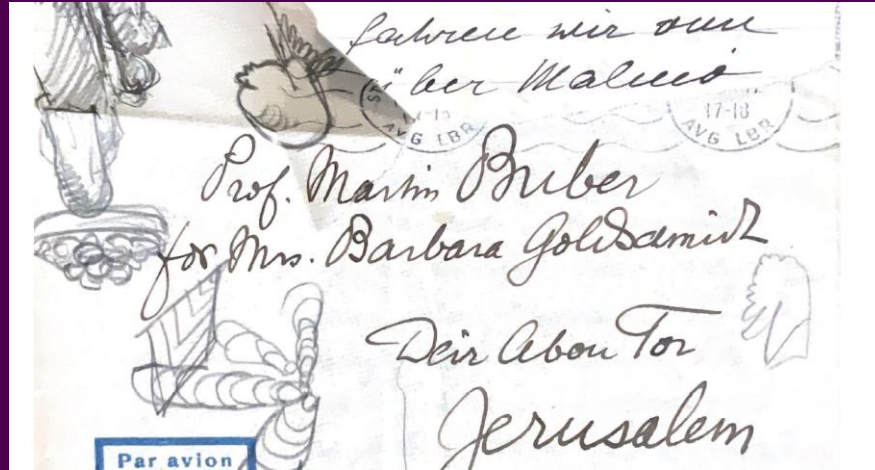 fahren wir nun
über Malmö
17-18
AVG LBR
AVG LBR
Prof. Martin Buber
for Mrs. Barbara Goldscmidt
Deir Abou Tor
Jerusalem
Par avion